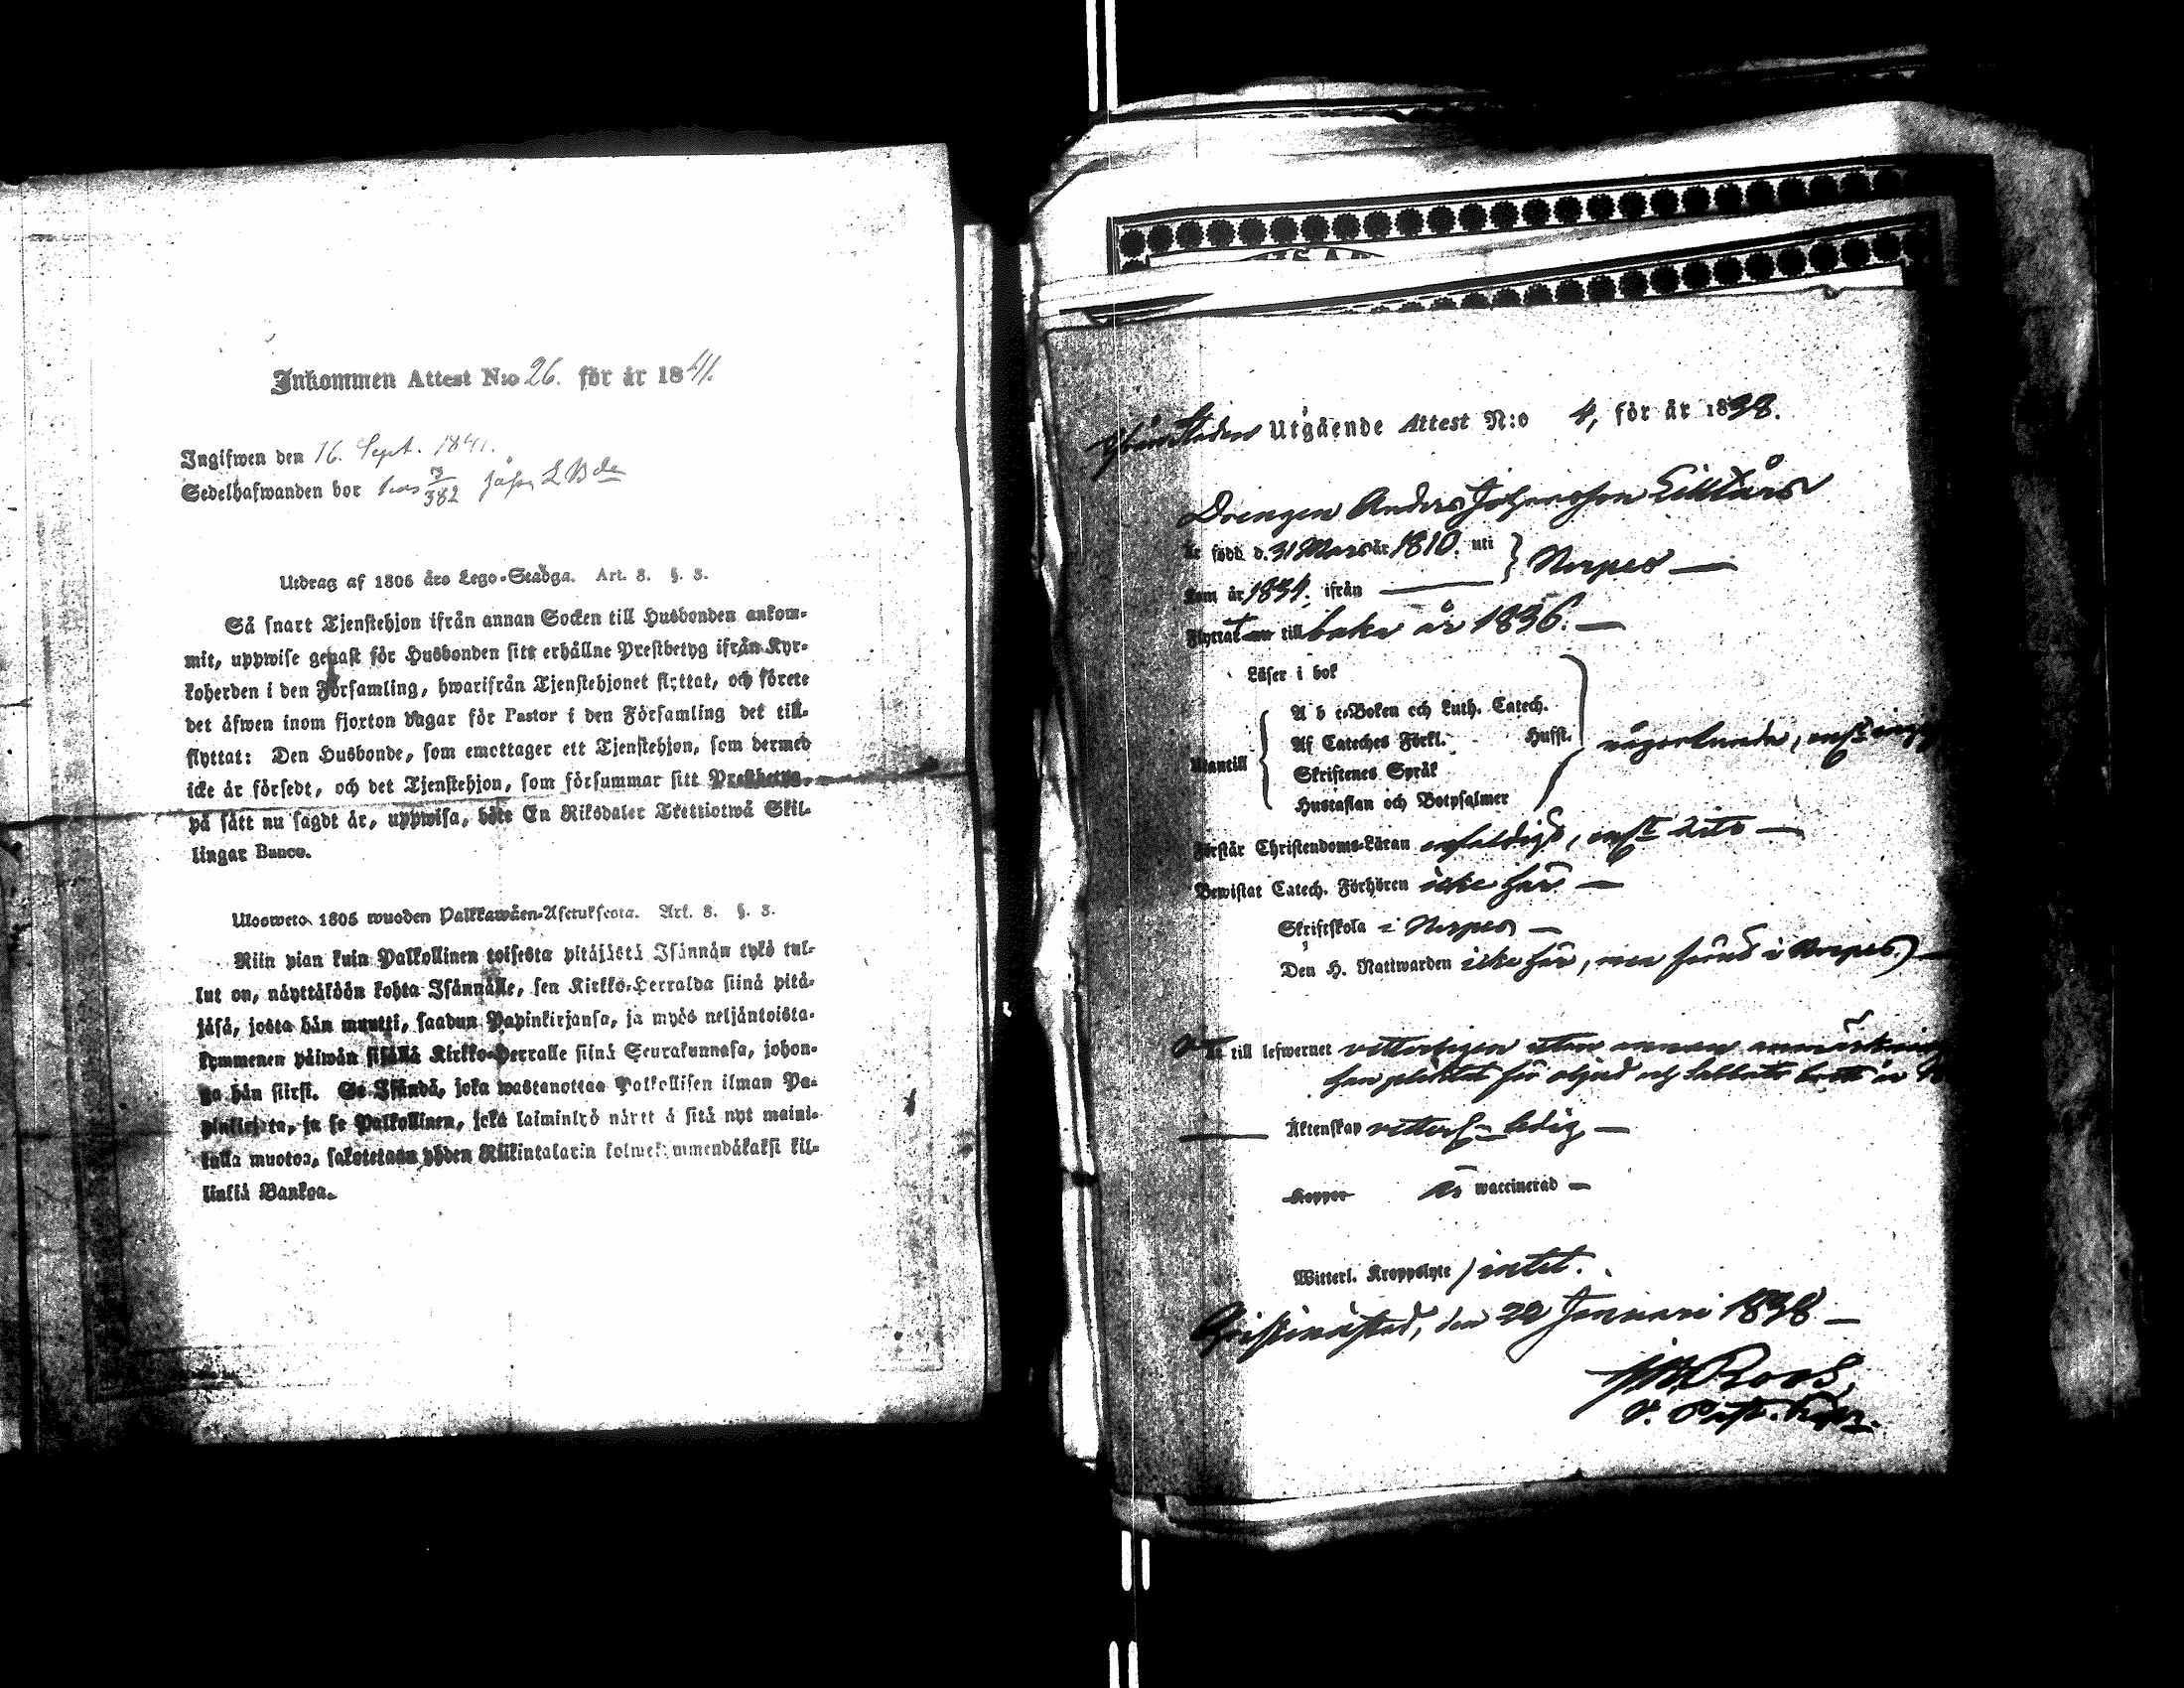 Inkommen Attest N:o 26. för år 1841.
Ingifwen den 16. Sept. 1841.
Sedelhafwanden bor 7/382
Utdrag af 1805 års Lego-Stadga. Art. 8. §. 3.
Så snart Tjenstehjon ifrån annan Socken till Husbonden ankom-
mit, uppwise genast för Husbonden sitt erhållne Prestbetyg ifrån Kyr-
koherden i den Församling, hwarifrån Tjenstehjonet flyttat, och förete
det äfwen inom fjorton dagar för Pastor i den Församling det till-
flyttat: Den Husbonde, som emottager ett Tjenstehjon, som dermed
icke är försedt, och det Tjenstehjon, som försummar sitt Prestbetyg,
på sätt nu sagdt är, uppwisa, böte En Riksdaler Trettiotwå Skil-
lingar Banco.
Ulosweto 1805 wuoden Palkkawäen-Asetuksesta. Art. 8. §. 3.
Niin pian kuin Palkollinen toisesta pitäjästä Isännän tykö tul-
lut on, näyttäköön kohta Isännälle, sen Kirkko-Herralda siinä pitä-
jäsä, josta hän muutti, saadun Papinkirjansa, ja myös neljäntoista-
kymmenen päiwän sisällä Kirkko-Herralle siinä Seurakunnasa, johon-
ga hän siirsi. Se Isändä, joka wastanottaa Palkollisen ilman Pa-
pinkirjata, ja se Palkollinen, joka laiminlyö näyttää sitä nyt maini-
tulla muotoa, sakotetaan yhden Riikintalarin kolmekymmendäkaksi kil-
linkiä Bankoa.
Utgående Attest N:o 4, för år 1838.
Drengen Anders Johansson Lilltårs
är född d. 31 Mars år 1810. uti } Nerpes —
Kom år 1834. ifrån —
Flyttat till baka år 1836. —
Läser i bok
A b c-Boken och Luth. Catech.
Af Cateches Förkl. Husst.
någorlunda,
Utantill
Skriftenes Språk
Hustaflan och Botpsalmer
Förstår Christendoms-Läran enfaldigt, —
Bewistat Catech. Förhören icke här —
Skriftskola i Nerpes —
Den H. Nattwarden icke här, men förut i Nerpes) —
till lefwernet vitterligen utan annan anmärkning
han pliktat för och
— Äktenskap ledig —
Koppor är waccinerad —
Witterl. Kroppslyte / intet.
Christinæstad, den 22 Januari 1838 —
Roos